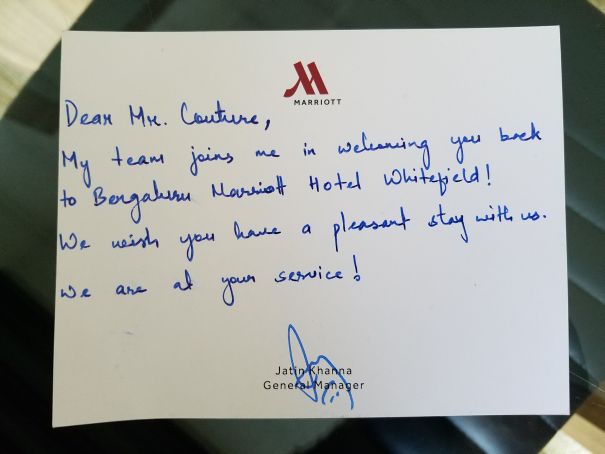 MARRIOTT
Dear Mr. Couture,
My team joins me in welcoming you back
to Bengaluru Marriott Hotel Whitefield!
We wish you have a pleasant stay with us.
We are at your service!
Jatin Khanna
General Manager